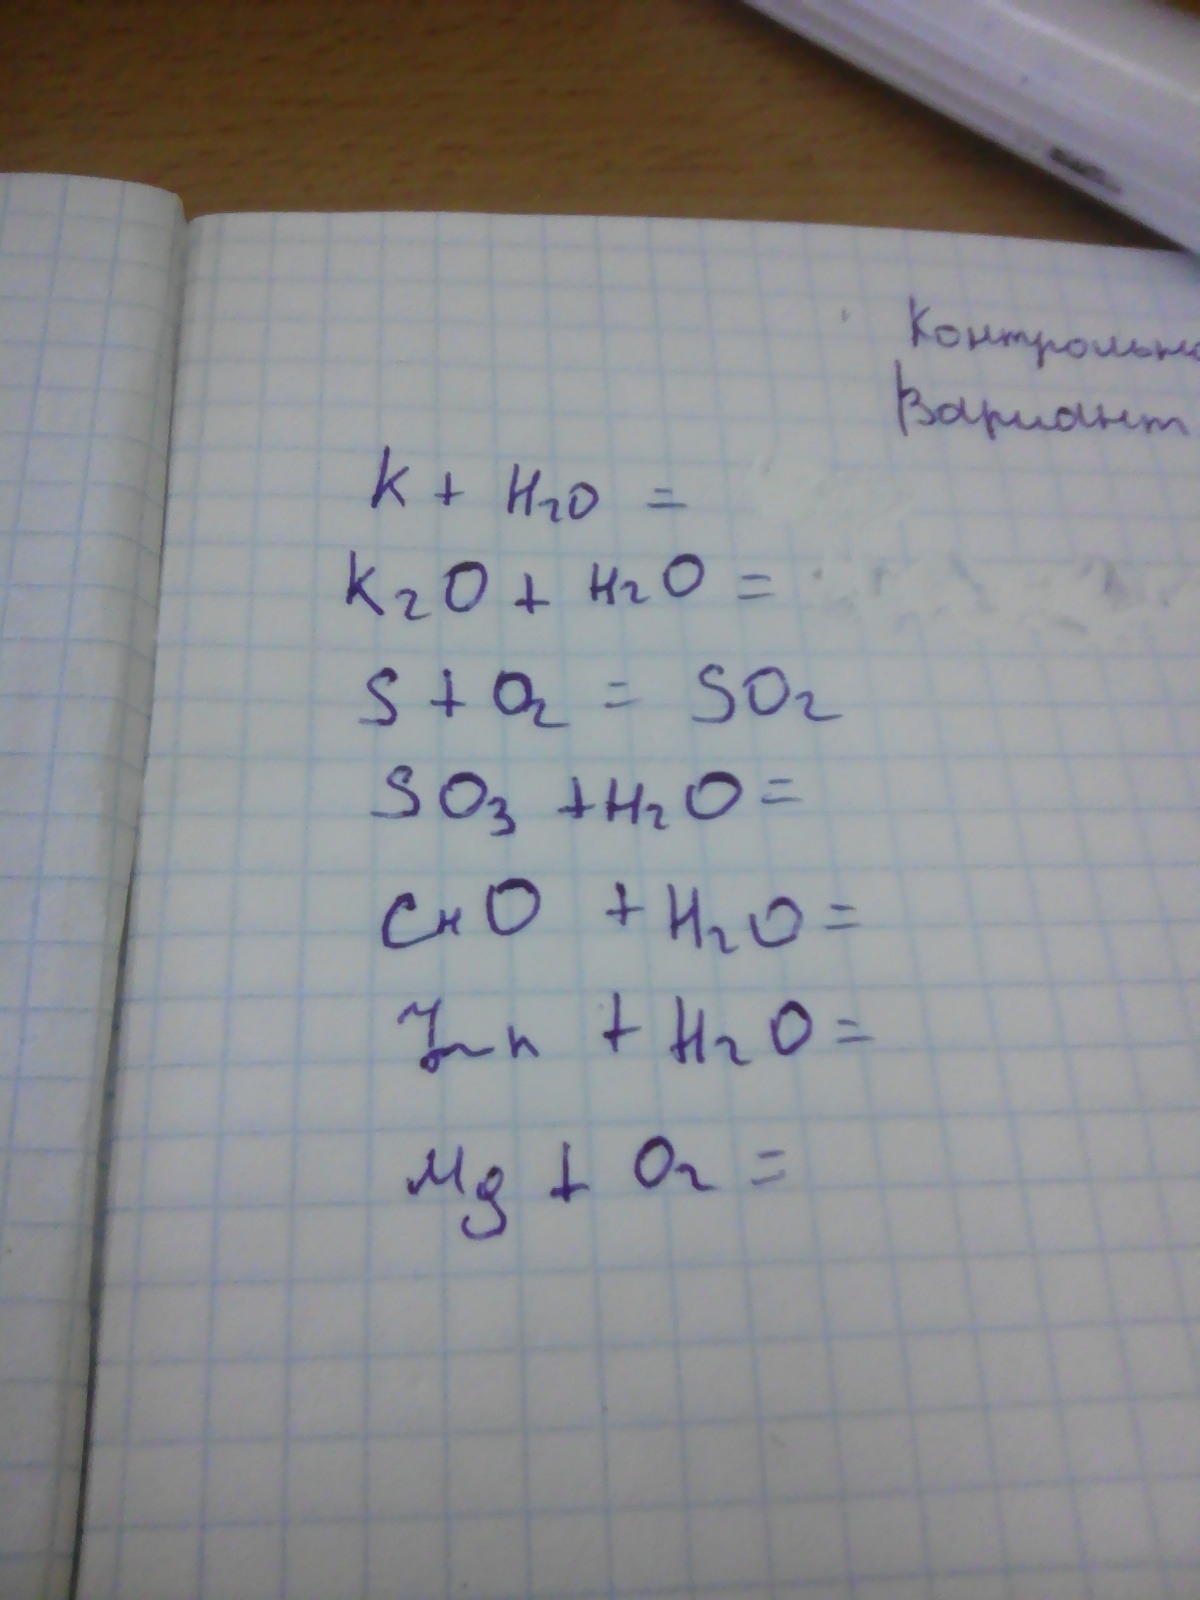 Контрольно
Вариант
K + H₂O =
K₂O + H₂O =
S + O₂ = SO₂
SO₃ + H₂O =
CuO + H₂O =
Zn + H₂O =
Mg + O₂ =